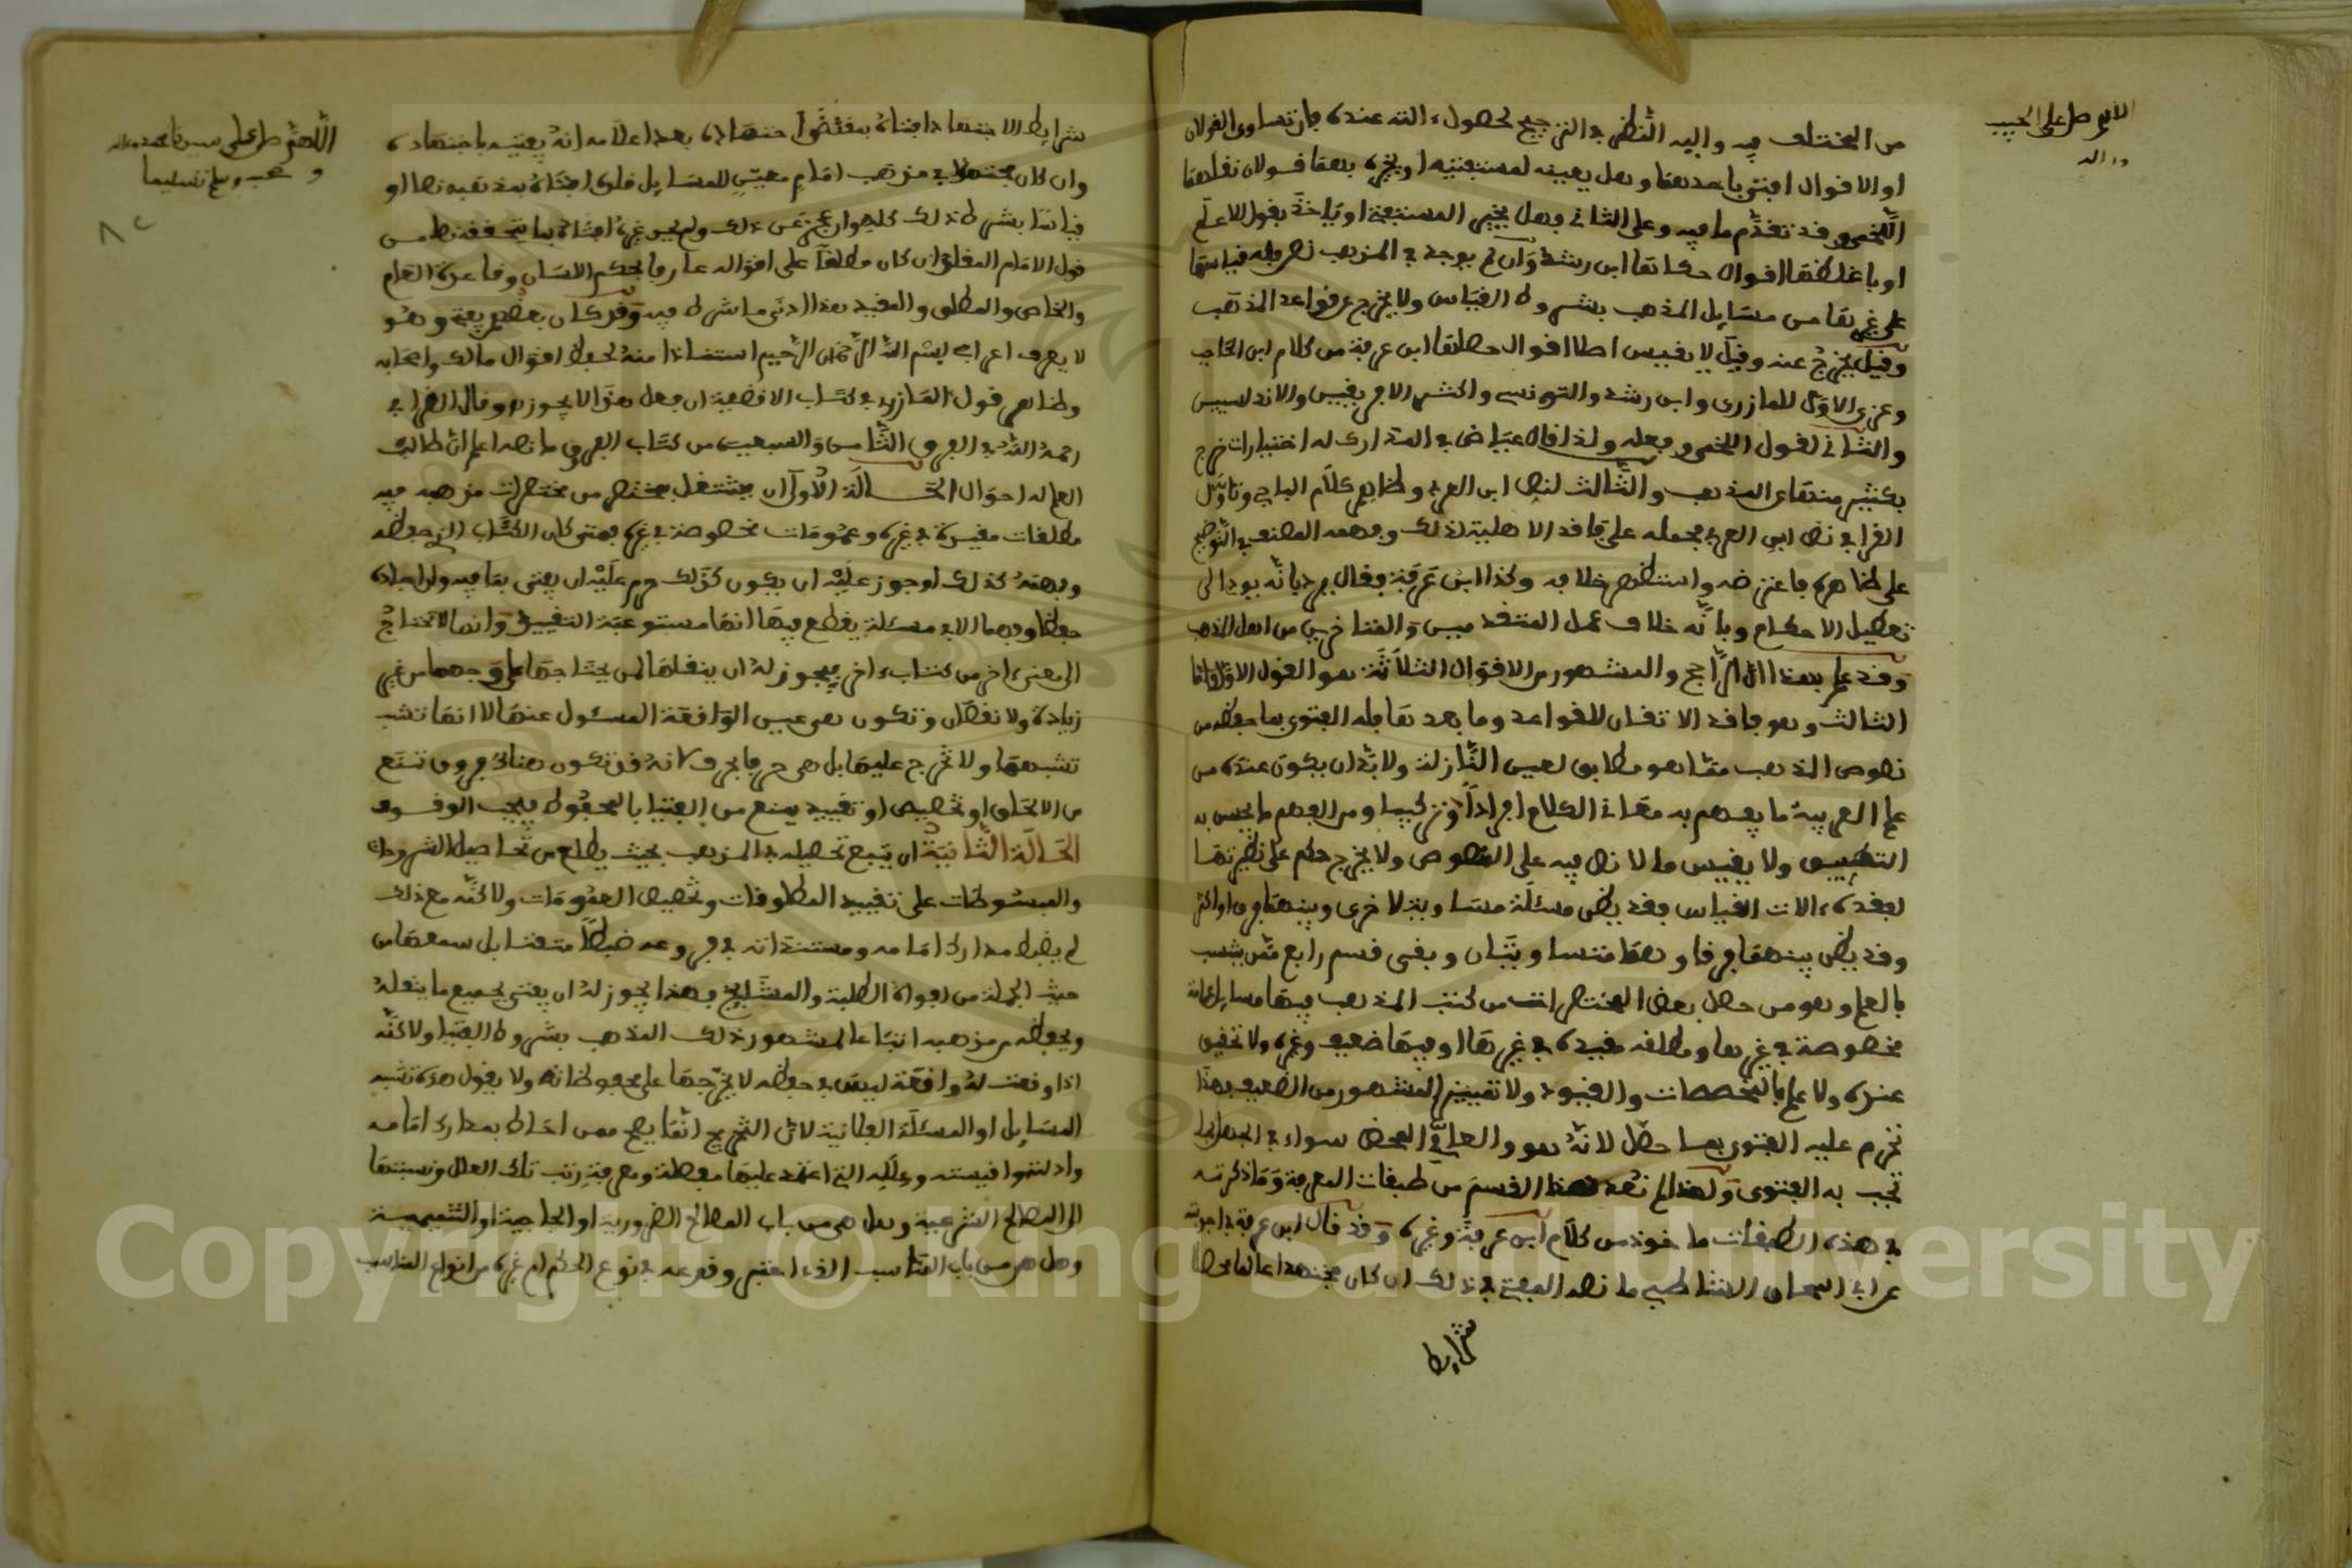 اللهم صل على الحبيب
واله
من المختلف فيه واليه النظر في الترجيح لحصول ءالته عنده فإن تساوى القولان
او الاقوال افتى باحدهما وهل بعينه لمستفتيه او يخيره بهما قولان نقلهما
اللخمي وقد تقدم ما فيه وعلى الثاني فهل يخير المستفتي او ياخذ بقول الاعلم
او باغلظها اقوال حكاها ابن رشد وان لم يوجد في المذهب نص فله قياسها
على غيرها من مسايل المذهب بشروط القياس ولا يخرج عن قواعد المذهب
وقيل يخرج عنه وقيل لا يقيس اصلا اقوال حصلها ابن عرفة من كلام ابن الحاجب
وعزى الاول للمازري وابن رشد والتونسي واكثر الافريقيين والاندلسيين
والثاني لقول اللخمي وفعله ولذا قال عياض في المدارك له اختيارات خرج
بكثير منها عن المذهب والثالث لنص ابن العربي وظاهر كلام الباجي وتاول
القرافي نص ابن العربي فحمله على فاقد الاهلية لذلك وفهمه المصنف في التوضيح
على ظاهره فاعترضه واستظهر خلافه وكذا ابن عرفة فقال يرد بانه يودي الى
تعطيل الاحكام وبانه خلاف عمل المتقدمين والمتاخرين من اهل المذهب
وقد علم بهذا ان الراجح والمشهور من الاقوال الثلاثة هو القول الاول واما
الثالث وهو فاقد الاتقان للقواعد وما بعد فله الفتوى بما يحفظه من
نصوص المذهب مما هو مطابق لعين النازلة ولا بد ان يكون عنده من
علم العربية ما يفهم به معاني الكلام افرادا وتركيبا ومن الفهم ما يحسن به
التطبيق ولا يقيس ما لا نص فيه على المنصوص ولا يخرج حكم على نظيرتها
لفقده ءالات القياس فقد يظن مسئلة مساوية لاخرى وبينهما فرق او اكثر
وقد يظن بينهما فرقا وهما متساويتان وبقي قسم رابع ممن يتسب
بالعلم وهو من حصل بعض المختصرات من كتب المذهب فيها مسايل عامة
مخصوصة في غيرها ومطلقة مقيدة في غيرها او فيها ضعيف وغيره ولا تحقيق
عنده ولا علم بالمخصصات والقيود ولا تمييز المشهور من الضعيف فهذا
تحرم عليه الفتوى بما حصل لانه هو والعامي المحض سواء في الجهل بما
تجب به الفتوى ولهذا لم نعد هذا القسم من طبقات المعرفة وما ذكرته
في هذه الطبقات ماخوذ من كلام ابن عرفة وغيره وقد قال ابن عرفة في اجوبته
عن ابي اسحاق الشاطبي ما نصه المفتي في ذلك ان كان مجتهدا عالما محصلا
شرايط
اللهم صل على سيدنا محمد وءاله
وصحبه وسلم تسليما
شرايط الاجتهاد افتاه بمقتضى اجتهاده بعد اعلامه انه يفتيه باجتهاده
وان كان مجتهدا في مذهب امام معين للمسايل فله افتاءه بمذهبه نصا او
قياسا بشرط ذلك كله وان عجز عن ذلك ولم يجد غيره افتاه بما يتحققه نصا من
قول الامام المقلد ان كان مطلعا على اقواله عارفا بحكم اللسان وقاعدة العام
والخاص والمطلق والمقيد هذا ادنى ما اشرط فيه وقد كان بعضهم يفتي وهو
لا يعرف اعراب بسم الله الرحمن الرحيم استنادا منه لحفظ اقوال مالك واصحابه
وظاهر قول المازري في كتاب الاقضية ان فعل هذا لا يجوز وقال القرافي
رحمه الله في الفرق الثامن والسبعين من كتاب الفروق ما نصه اعلم ان طالب
العلم له احوال الحالة الاولى ان يشتغل بمختصر من مختصرات مذهبه فيه
مطلقات مقيدة في غيره وعمومات مخصوصة في غيره فمتى كان الكتاب الذي حفظه
وفهمه كذلك او جوز عليه ان يكون كذلك حرم عليه ان يفتي بما فيه وان اجاده
حفظا وفهما الا في مسئلة يقطع فيها انها مستوعبة التقييد وانها لا تحتاج
الى معنى ءاخر من كتاب ءاخر فيجوز له ان ينقلها لمن يحتاجها على وجهها من غير
زيادة ولا نقصان وتكون هي عين الواقعة المسئول عنها لا انها تشبهها
تشبهها ولا تخرج عليها بل هي هي حرفا بحرف لانه قد تكون هناك فروق تمنع
من الالحاق او تخصيص او تقييد يمنع من الفتيا بالمحفوظ فيجب الوقوف
الحالة الثانية ان يتسع تحصيله في المذهب بحيث يطلع من تفاصيل الشروحات
والمبسوطات على تقييد المطلقات وتخصيص العمومات ولاكنه مع ذلك
لم يضبط مدارك امامه ومستنداته في فروعه ضبطا متقنا بل سمعها من
حيث الجملة من افواه الطلبة والمشايخ فهذا يجوز له ان يفتي بجميع ما ينقله
ويحفظه من مذهبه اتباعا لمشهور ذلك المذهب بشروط الفتيا ولاكنه
اذا وقعت له واقعة ليس في حفظه لا يخرجها على محفوظاته ولا يقول هذه تشبه
المسايل او المسئلة الفلانية لان التخريج انما يصح ممن احاط بمدارك امامه
وادلته واقيسته وعلله التي اعتمد عليها مفصلة ومعرفة رتب تلك العلل ونسبتها
الى المصالح الشرعية وهل هي من باب المصالح الضرورية او الحاجية او التتميمية
وهل هي من باب المناسب الذي اعتبر نوعه في نوع الحكم ام غيره من انواع المناسب
Copyright © King Saud University